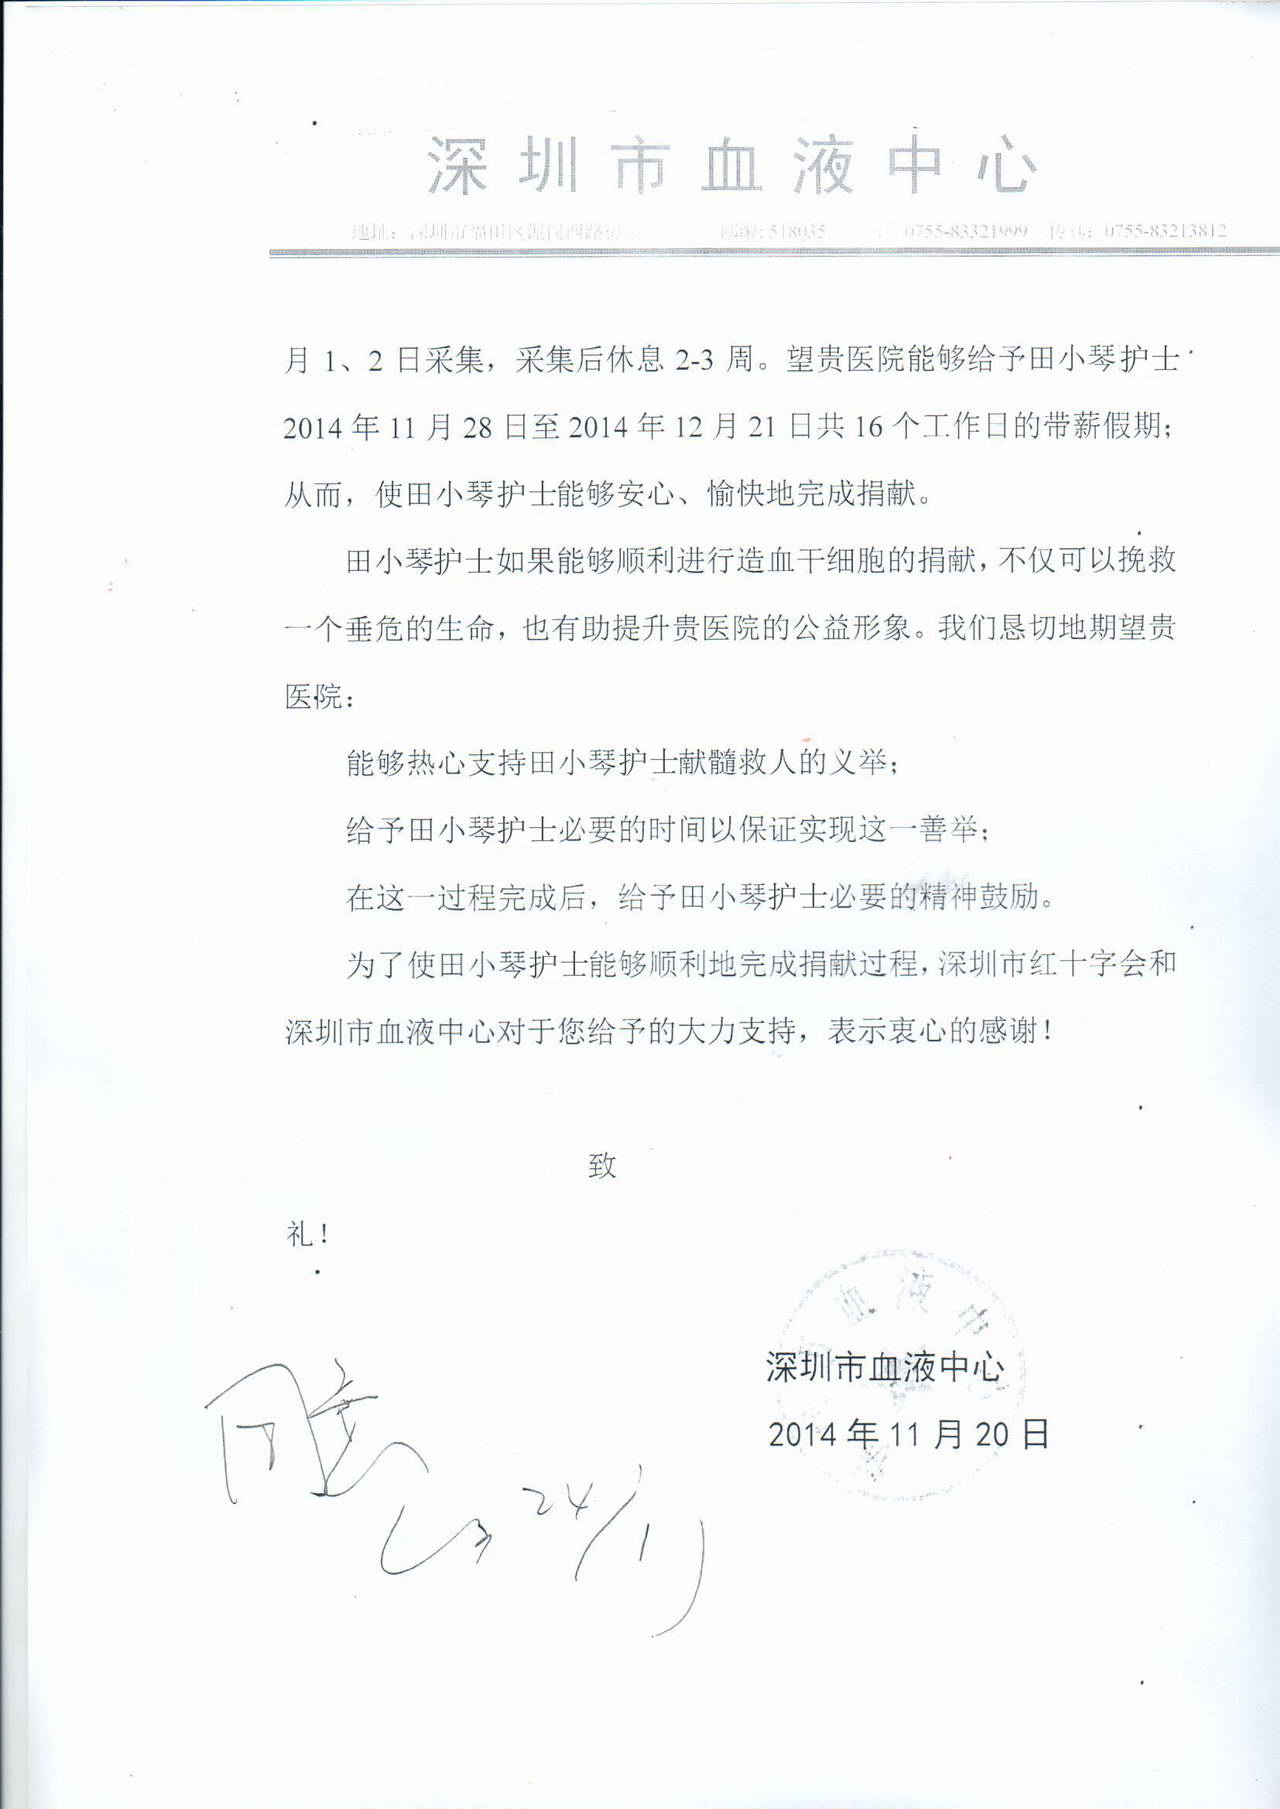 深圳市血液中心
地址：深圳市福田区泥岗西路 邮编: 518035 0755-83321999 传真：0755-83213812
月 1、2 日采集，采集后休息 2-3 周。望贵医院能够给予田小琴护士
2014 年 11 月 28 日至 2014 年 12 月 21 日共 16 个工作日的带薪假期；
从而，使田小琴护士能够安心、愉快地完成捐献。
田小琴护士如果能够顺利进行造血干细胞的捐献，不仅可以挽救
一个垂危的生命，也有助提升贵医院的公益形象。我们恳切地期望贵
医院：
能够热心支持田小琴护士献髓救人的义举；
给予田小琴护士必要的时间以保证实现这一善举；
在这一过程完成后，给予田小琴护士必要的精神鼓励。
为了使田小琴护士能够顺利地完成捐献过程，深圳市红十字会和
深圳市血液中心对于您给予的大力支持，表示衷心的感谢！
致
礼！
血液中心
深圳市血液中心
2014 年 11 月 20 日
同意
24/11